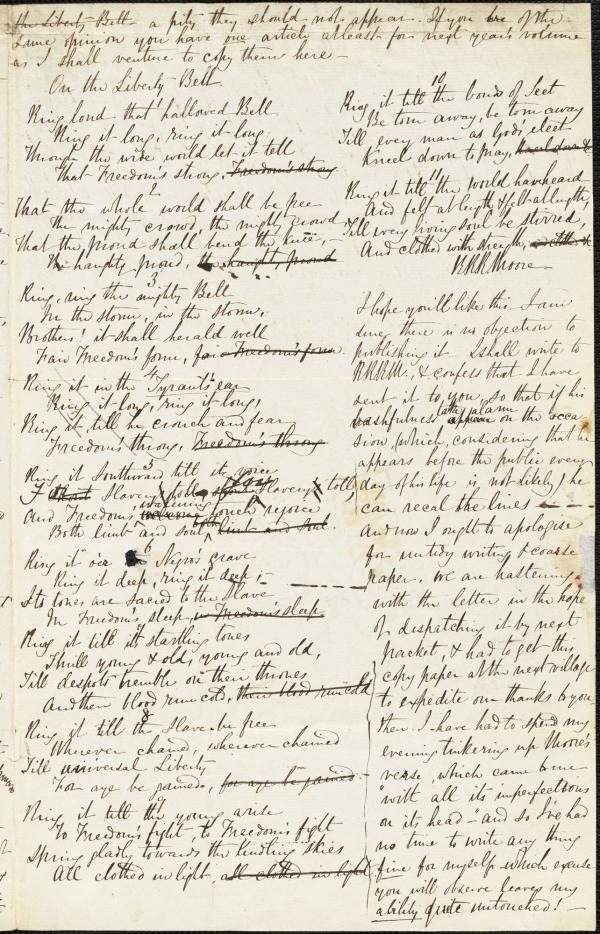 the Liberty Bell - a pity they should not appear. If you be of the
same opinion you have one article at least for next year's volume
as I shall venture to copy them here -
On the Liberty Bell
Ring loud that hallowed Bell
Ring it long, ring it long
Through the wide world let it tell
That Freedom's strong, Freedom's strong
2
That the whole world shall be free
The mighty crowd, the mighty crowd
That the proud shall bend the knee, -
The haughty proud, the haughty proud
3
Ring, ring the mighty Bell
In the storm, in the storm,
Brothers! it shall herald well
Fair Freedom's form, fair Freedom's form.
4
Ring it in the Tyrant's ear
Ring it long, ring it long,
Ring it till he crouch and fear
Freedom's throng, Freedom's throng
5
Ring it Southward till its voice
For Slavery toll, Slavery toll,
And Freedom's wakening touch rejoice
Both limb and soul, both limb and soul.
6
Ring it o'er Negro's grave
Ring it deep, ring it deep; -
Its tones are sacred to the slave
In Freedom's sleep, in Freedom's sleep
Ring it till its startling tones
Thrill young & old, young and old,
Till despots tremble on their thrones
And their blood run cold, their blood run cold
8
Ring it till the slave be free
Wherever chained, wherever chained
Till universal Liberty
For aye be gained, for aye be gained.
9
Ring it till the young arise
To Freedom's fight, to Freedom's fight
Spring gladly towards the kindling skies
All clothed in light, all clothed in light.
10
Ring it till the bonds of sect
Be torn away, be torn away
Till every man as God's elect
Kneel down to pray, kneel down &
11
Ring it till the world have heard
And felt at length, & felt at length,
Till every living soul be stirred,
And clothed with strength,
R R R Moore -
I hope you'll like this. I am
sure there is no objection to
publishing it. I shall write to
R.R.R.M. & confess that I have
sent it to you, so that if his
bashfulness alarm on the occa
sion, (which, considering that he
appears before the public every
day of his life is, not likely,) he
can recal the lines -
And now I ought to apologise
for untidy writing & coarse
paper. We are hastening
with the letter in the hope
of dispatching it by next
packet, & had to get this
copy paper at the next village
to expedite our thanks to you.
then I have had to spend my
evening tinkering up Moore's
verse, which came to me
"with all its imperfections
on its head" - and so I've had
no time to write any thing
fine for myself - which excuse
you will observe leaves my
ability quite untouched! -